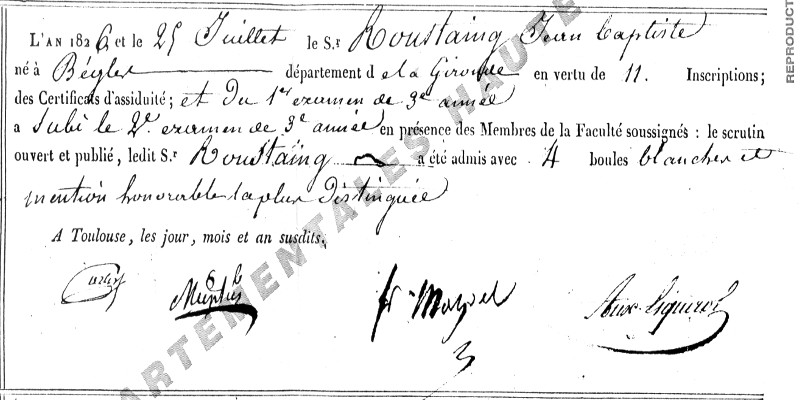 L'AN 1826 et le 25 Juillet le S.r Roustaing Jean baptiste
né à Bégles département de la Gironde en vertu de 11. Inscriptions;
des Certificats d'assiduité; et du 1er examen de 3e année
a subi le 2e. examen de 3e année en présence des Membres de la Faculté soussignés : le scrutin
ouvert et publié, ledit S.r Roustaing a été admis avec 4 boules blanches et
mention honorable la plus distinguée
A Toulouse, les jour, mois et an susdits.
ARTEMENTALES HAUTE
REPRODUCT